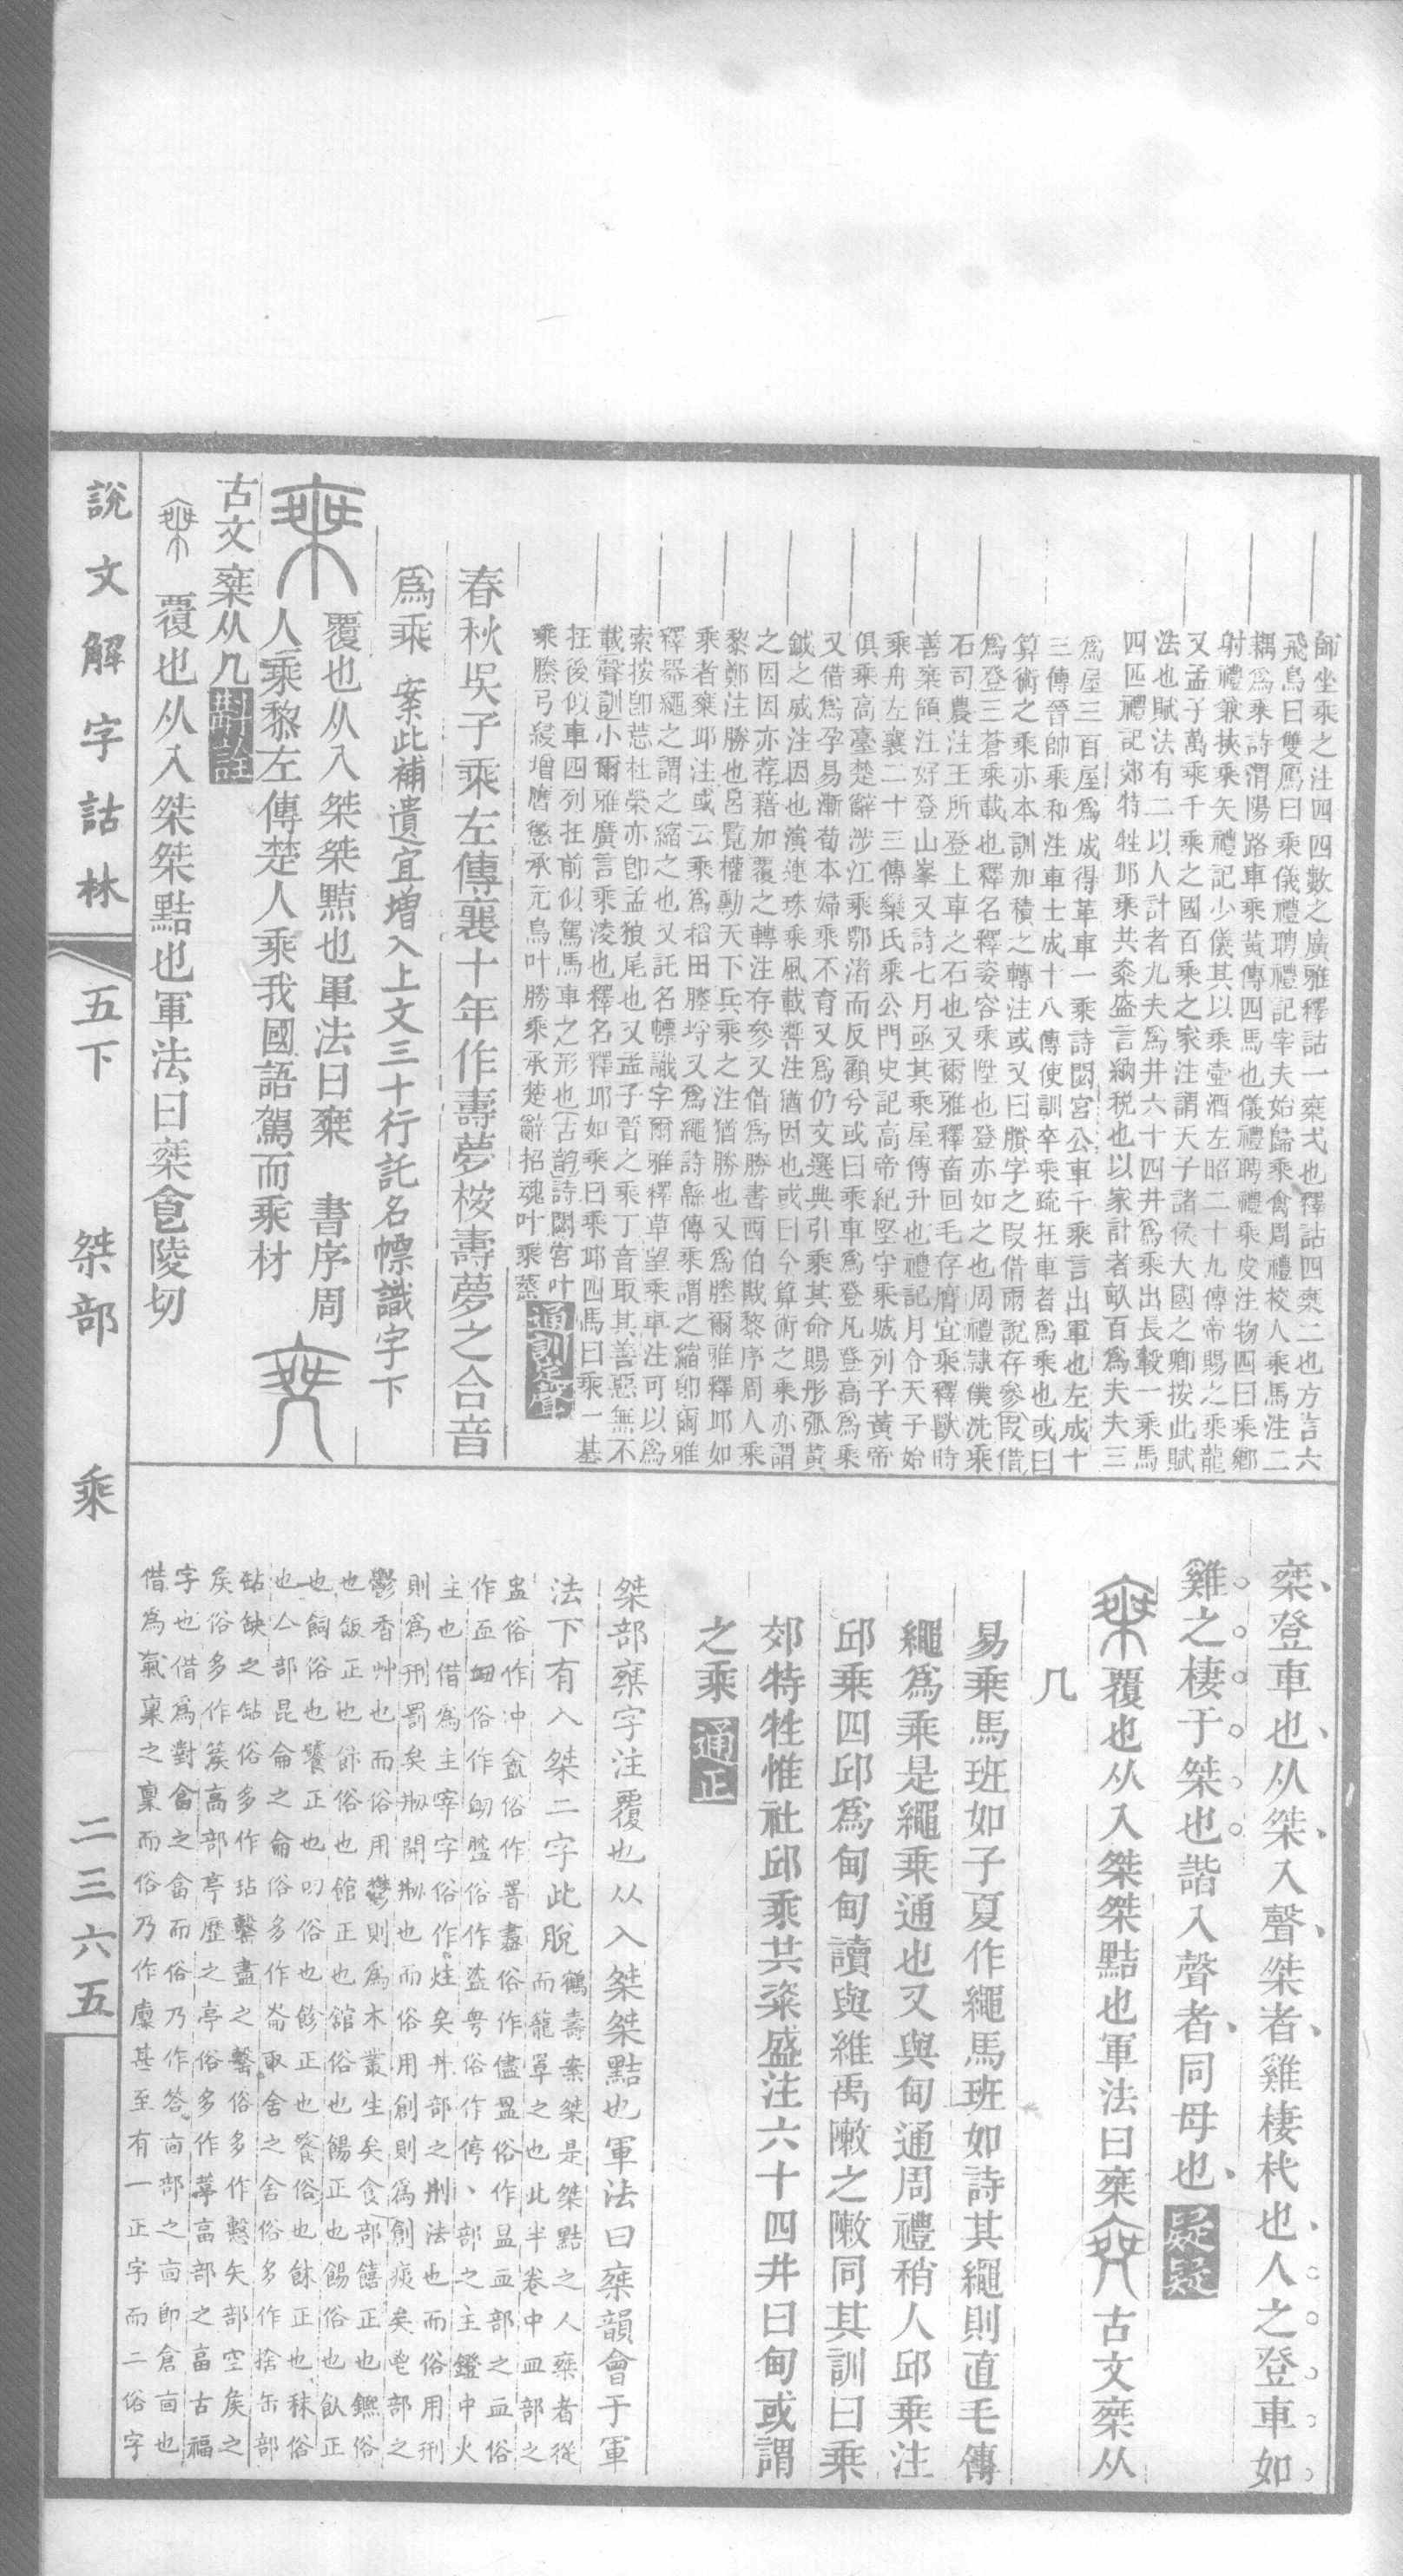 師坐乘之注四四數之廣雅釋詁一椉弌也釋詁四椉二也方言六
飛鳥曰雙鴈曰乘儀禮聘禮記宰夫始歸乘禽周禮校人乘馬注二
耦爲乘詩渭陽路車乘黃傳四馬也儀禮聘禮乘皮注物四曰乘鄉
射禮兼挾乘矢禮記少儀其以乘壺酒左昭二十九傳帝賜之乘龍
又孟子萬乘千乘之國百乘之家注謂天子諸侯大國之卿按此賦
法也賦法有二以人計者九夫爲井六十四井爲乘出長轂一乘馬
四匹禮記郊特牲邱乘共粢盛言納稅也以家計者畝百爲夫夫三
爲屋三百屋爲成得革車一乘詩閟宮公車千乘言出軍也左成十
三傳晉帥乘和注車士成十八傳使訓卒乘疏在車者爲乘也或曰
算術之乘亦本訓加積之轉注或又曰賸字之叚借爾說存參叚借
爲登三蒼乘載也釋名釋姿容乘陞也登亦如之也周禮隸僕洗乘
石司農注王所登上車之石也又爾雅釋畜回毛存膺宜乘釋獸時
善椉領注好登山峯又詩七月亟其乘屋傳升也禮記月令天子始
乘舟左襄二十三傳欒氏乘公門史記高帝紀堅守乘城列子黃帝
俱乘高臺楚辭涉江乘鄂渚而反顧兮或曰乘車爲登凡登高爲乘
又借爲孕易漸荀本婦乘不育又爲仍文選典引乘其命賜彤弧黃
鉞之威注因也演連珠乘風載響注猶因也或曰今算術之乘亦謂
之因因亦荐藉加覆之轉注存參又借爲勝書西伯戡黎序周人乘
黎鄭注勝也呂覽權勳天下兵乘之注猶勝也又爲塍爾雅釋邱如
乘者椉邱注或云乘爲稻田塍埒又爲繩詩緜傳乘謂之縮卽爾雅
釋器繩之謂之縮之也又託名幖識字爾雅釋草望乘車注可以爲
索按卽莣杜榮亦卽孟狼尾也又孟子晉之乘丁音取其善惡無不
載聲訓小爾雅廣言乘淩也釋名釋邱如乘曰乘邱四馬曰乘一基
在後似車四列在前似駕馬車之形也古韵詩閟宮叶
乘塍弓綅增膺懲承元鳥叶勝乘承楚辭招魂叶乘蒸 通訓定聲
春秋吳子乘左傳襄十年作壽夢桉壽夢之合音
爲乘 案此補遺宜增入上文三十行託名幖識字下
椉 覆也从入桀桀黠也軍法曰椉 書序周
人乘黎左傳楚人乘我國語駕而乘材
古文椉从几 斠詮
椉 覆也从入桀桀黠也軍法曰椉食陵切
椉登車也从桀入聲桀者雞棲杙也人之登車如
雞之棲于桀也諧入聲者同母也 疑疑
椉 覆也从入桀桀黠也軍法曰椉 古文椉从
几
易乘馬班如子夏作繩馬班如詩其繩則直毛傳
繩爲乘是繩乘通也又與甸通周禮稍人邱乘注
邱乘四邱爲甸甸讀與維禹敶之敶同其訓曰乘
郊特牲惟社邱乘共粢盛注六十四井曰甸或謂
之乘 通正
桀部椉字注覆也从入桀桀黠也軍法曰椉韻會于軍
法下有入桀二字此脫 鶴壽案桀是桀黠之人椉者從
而籠罩之也此半卷中皿部之
盅俗作沖盦俗作罯盡俗作儘昷俗作昷血部之衁俗
作衁衄俗作衂盬俗作盜甹俗作俜丶部之主鐙中火
主也借爲主宰字俗作炷矣丼部之刑法也而俗用刑
則爲刑罰矣刱開刱也而俗用創則爲創痍矣鬯部之
鬱香艸也而俗用鬱則爲木叢生矣食部饎正也𩟗俗
也飯正也飰俗也館正也舘俗也餳正也餳俗也飤正
也飼俗也饕正也叨俗也飻正也餮俗也餗正也秣俗
也亼部昆侖之侖俗多作崙取舍之舍俗多作捨缶部
㸃缺之㸃俗多作玷罄盡之罄俗多作磬矢部空矦之
矦俗多作篌高部亭歷之亭俗多作葶畐部之畐古福
字也借爲對畣之畣而俗乃作答㐭部之㐭卽倉㐭也
借爲氣稟之稟而俗乃作廩甚至有一正字而二俗字
說文解字詁林 五下 桀部 乘 二三六五